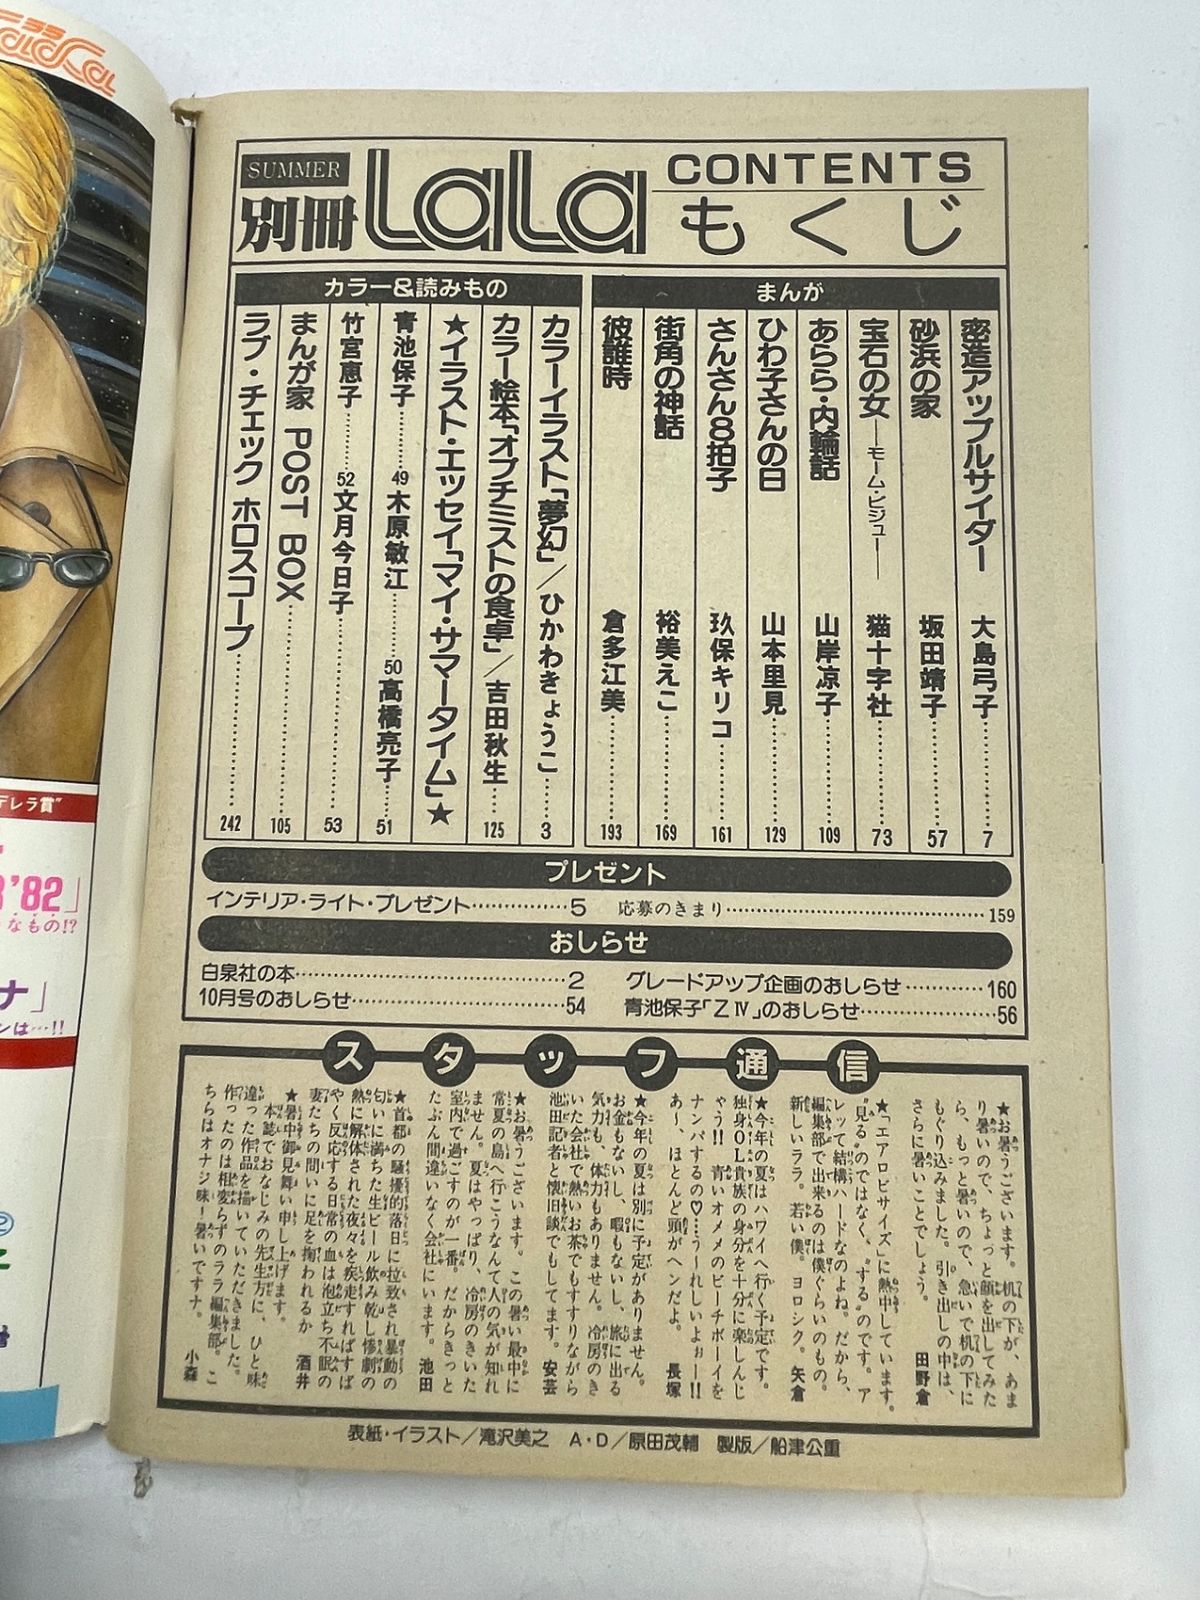 SUMMER
別冊 LaLa
CONTENTS
もくじ
まんが
密造アップルサイダー 大島弓子 7
砂浜の家 坂田靖子 57
宝石の女―モーム・ビジュー― 猫十字社 73
あらら・内輪話 山岸凉子 109
ひわ子さんの日 山本里見 129
さんさん8拍子 玖保キリコ 161
街角の神話 裕美えこ 169
彼誰時 倉多江美 193
カラー&読みもの
カラーイラスト「夢幻」/ひかわきょうこ 3
カラー絵本「オプチミストの食卓」/吉田秋生 125
★イラスト・エッセイ「マイ・サマータイム」★
青池保子 49 木原敏江 50 高橋亮子 51
竹宮恵子 52 文月今日子 53
まんが家 POST BOX 105
ラブ・チェック ホロスコープ 242
プレゼント
インテリア・ライト・プレゼント 5 応募のきまり 159
おしらせ
白泉社の本 2 グレードアップ企画のおしらせ 160
10月号のおしらせ 54 青池保子「Z Ⅳ」のおしらせ 56
スタッフ通信
★お暑うございます。机の下が、あま
り暑いので、ちょっと顔を出してみた
ら、もっと暑いので、急いで机の下に
もぐり込みました。引き出しの中は、
さらに暑いことでしょう。 田野倉
★「エアロビサイズ」に熱中しています。
"見る"のではなく、"する"のです。ア
レッて結構ハードなのよね。だから、
編集部で出来るのは僕ぐらいのもの。
新しいララ。若い僕。ヨロシク。矢倉
★今年の夏はハワイへ行く予定です。
独身OL貴族の身分を十分に楽しんじ
ゃう!! 青いオメメのビーチボーイを
ナンパするの♡…うーれしいよぉー!!
あ〜、ほとんど頭がヘンだよ。 長塚
★今年の夏は別に予定がありません。
お金もないし、暇もないし、旅に出る
気力も、体力もありません。冷房のき
いた会社で熱いお茶でもすすりながら
池田記者と懐旧談でもしてます。安芸
★お暑うございます。この暑い最中に
常夏の島へ行こうなんて人の気が知れ
ません。夏はやっぱり、冷房のきいた
室内で過ごすのが一番。だからきっと
たぶん間違いなく会社にいます。池田
★首都の騒擾的落日に拉致され暴動の
匂いに満ちた生ビール飲み乾し惨劇の
熱に解体された夜々を疾走すればすば
やく反応する日常の血は泡立ち不眠の
妻たちの間いに足を掬われるか 酒井
★暑中御見舞い申し上げます。
本誌でおなじみの先生方に、ひと味
違った作品を描いていただきました。
作ったのは相変らずのララ編集部。こ
ちらはオナジ味!暑いですナ。 小森
表紙・イラスト/滝沢美之 A・D/原田茂輔 製版/船津公重
デレラ賞"
'82」
なもの!?
ナ」
ンは…!!